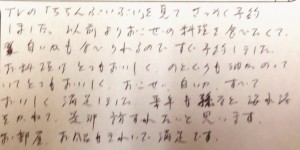 TVの「ちちんぷいぷい」を見て すっかく予約
しました。以前よりおこぜの料理を食べたくて、
魚 白いかも食べられるので すぐ予約しました。
お料理は とてもおいしく、のどぐろも 脂がのって
いてとてもおいしく、おこぜ、白いか、すべて
おいしく 満足しました。来年も 孫等と 海水浴
をかねて、是非 訪すれたいと 思います。
お部屋、お風呂もきれいで 満足です。